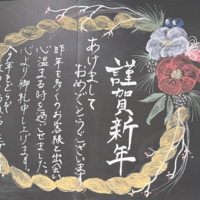 謹賀新年
あけまして
おめでとうございます
昨年も多くのお客様と出会い
心温まる時を過ごせました。
心より御礼申し上げます
今年もどうぞ